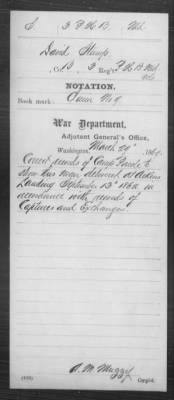 S. 3 P. H. B. Md.
David Stump
Co. B, 3 Reg't P. H. B. Md.
Vols
NOTATION.
Book mark:
War Department,
Adjutant General's Office,
Washington, March 29", 186
Correct records of Camp Parole to
show this man delivered at Aikens
Landing September 13" 1862 in
accordance with records of
Captures and Exchanges.
Copyist.